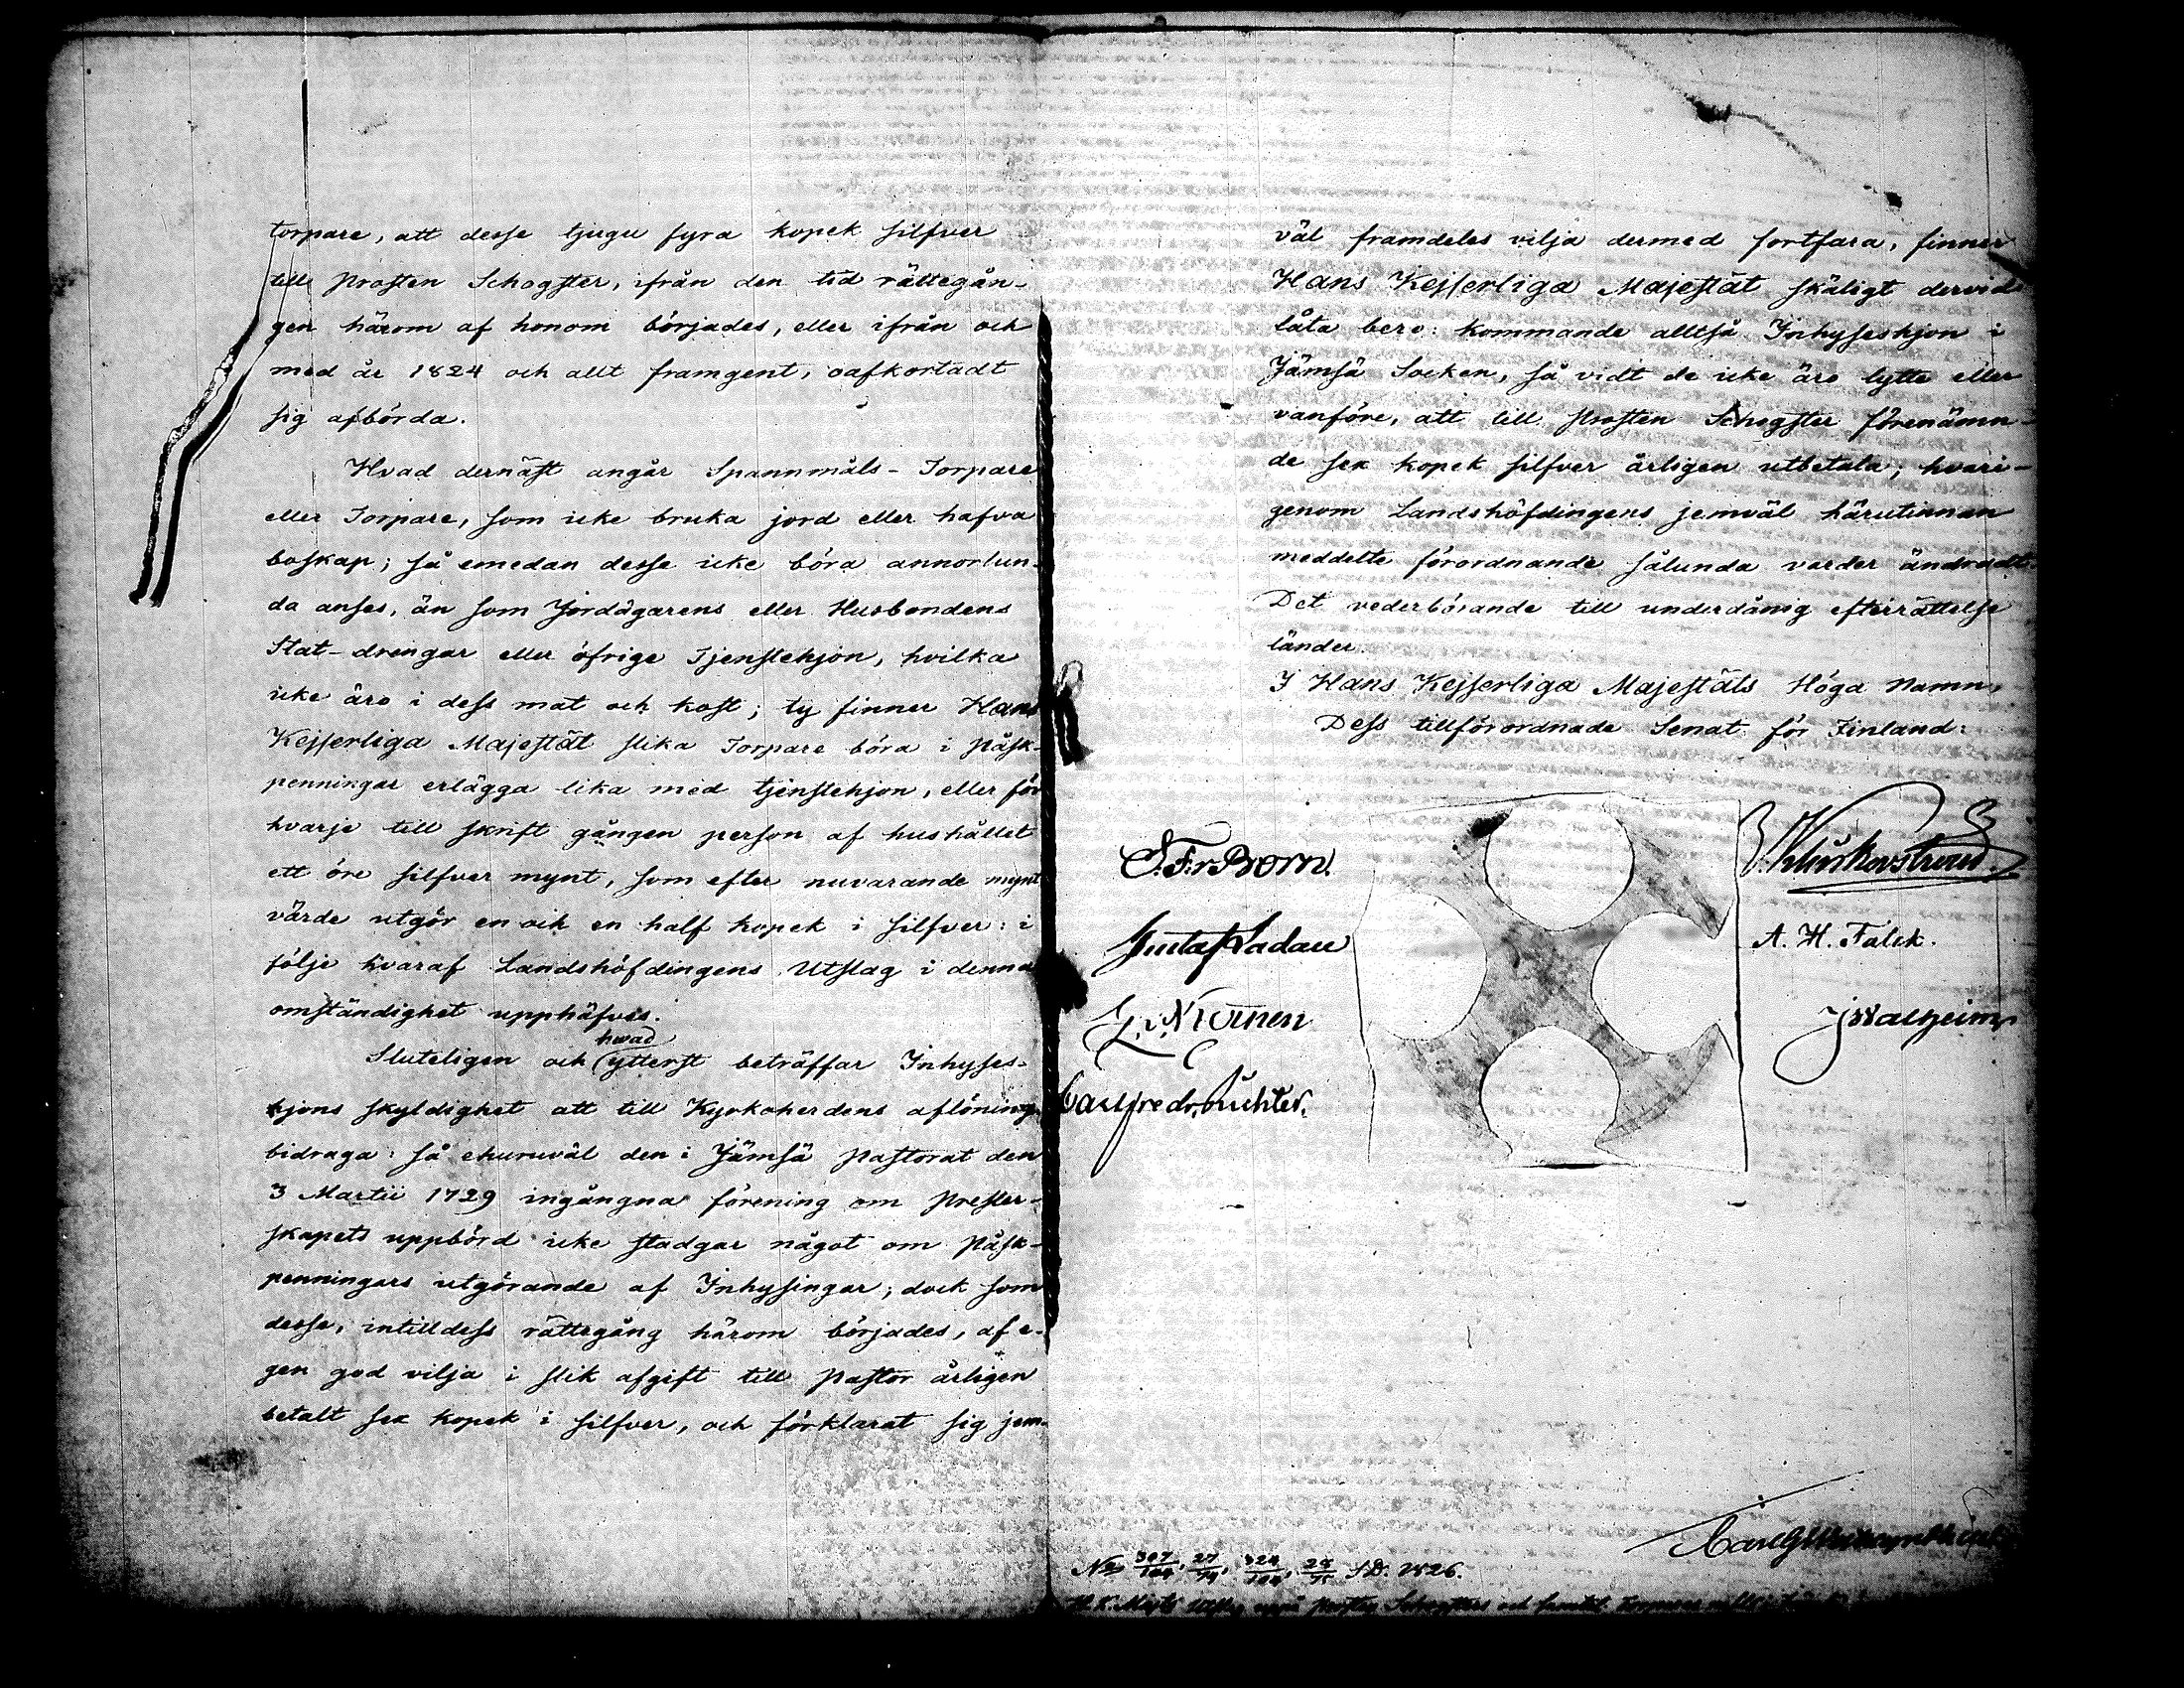 torpare, att desse tjugu fyra kopek silfver
till Prosten Schogster, ifrån den tid rättegån-
gen härom af honom börjades, eller ifrån och
med år 1824 och allt framgent, oafkortadt
sig afbörda.
Hvad dernäst angår Spannmåls-Torpare
eller Torpare, som icke bruka jord eller hafva
boskap; så emedan desse icke böra annorlun-
da anses, än som Jordägarens eller Husbondens
Stat-drengar eller öfrige Tjenstehjon, hvilka
icke äro i dess mat och kost; ty finner Hans
Kejserliga Majestät slika Torpare böra i Påsk-
penningar erlägga lika med tjenstehjon, eller för
hvarje till skrift gången person af hushållet
ett öre silfver mynt, som efter nuvarande mynt
värde utgör en och en half kopek i silfver: i
följe hvaraf Landshöfdingens Utslag i denna
omständighet upphäfves.
hvad
Sluteligen och ytterst beträffar Inhyses-
hjons skyldighet att till Kyrkoherdens aflöning
bidraga: så ehuruväl den i Jämsä Pastorat den
3 Martii 1729 ingångna förening om Prester-
skapets uppbörd icke stadgar något om Påsk-
penningars utgörande af Inhysingar; dock som
desse, intilldess rättegång härom börjades, af e-
gen god vilja i slik afgift till Pastor årligen
betalt sex kopek i silfver, och förklarat sig jem-
väl framdeles vilja dermed fortfara, finner
Hans Kejserliga Majestät skäligt dervid
låta bero: kommande alltså Inhyseshjon i
Jämsä Socken, så vidt de icke äro lytte eller
vanföre, att till Prosten Schogster förenämn-
de sex kopek silfver årligen utbetala; hvari-
genom Landshöfdingens jemväl härutinnan
meddelte förordnande sålunda varder ändradt.
Det vederbörande till underdånig efterrättelse
länder.
I Hans Kejserliga Majestäts Höga Namn,
Dess tillförordnade Senat för Finland:
S. Fr. Born.
Gustaf Ladau
A. H. Falck.
J Walheim
Carl Fredr. Richter.
No 307/104, 27/74, 324/108, 28/75 S.D. 1826.